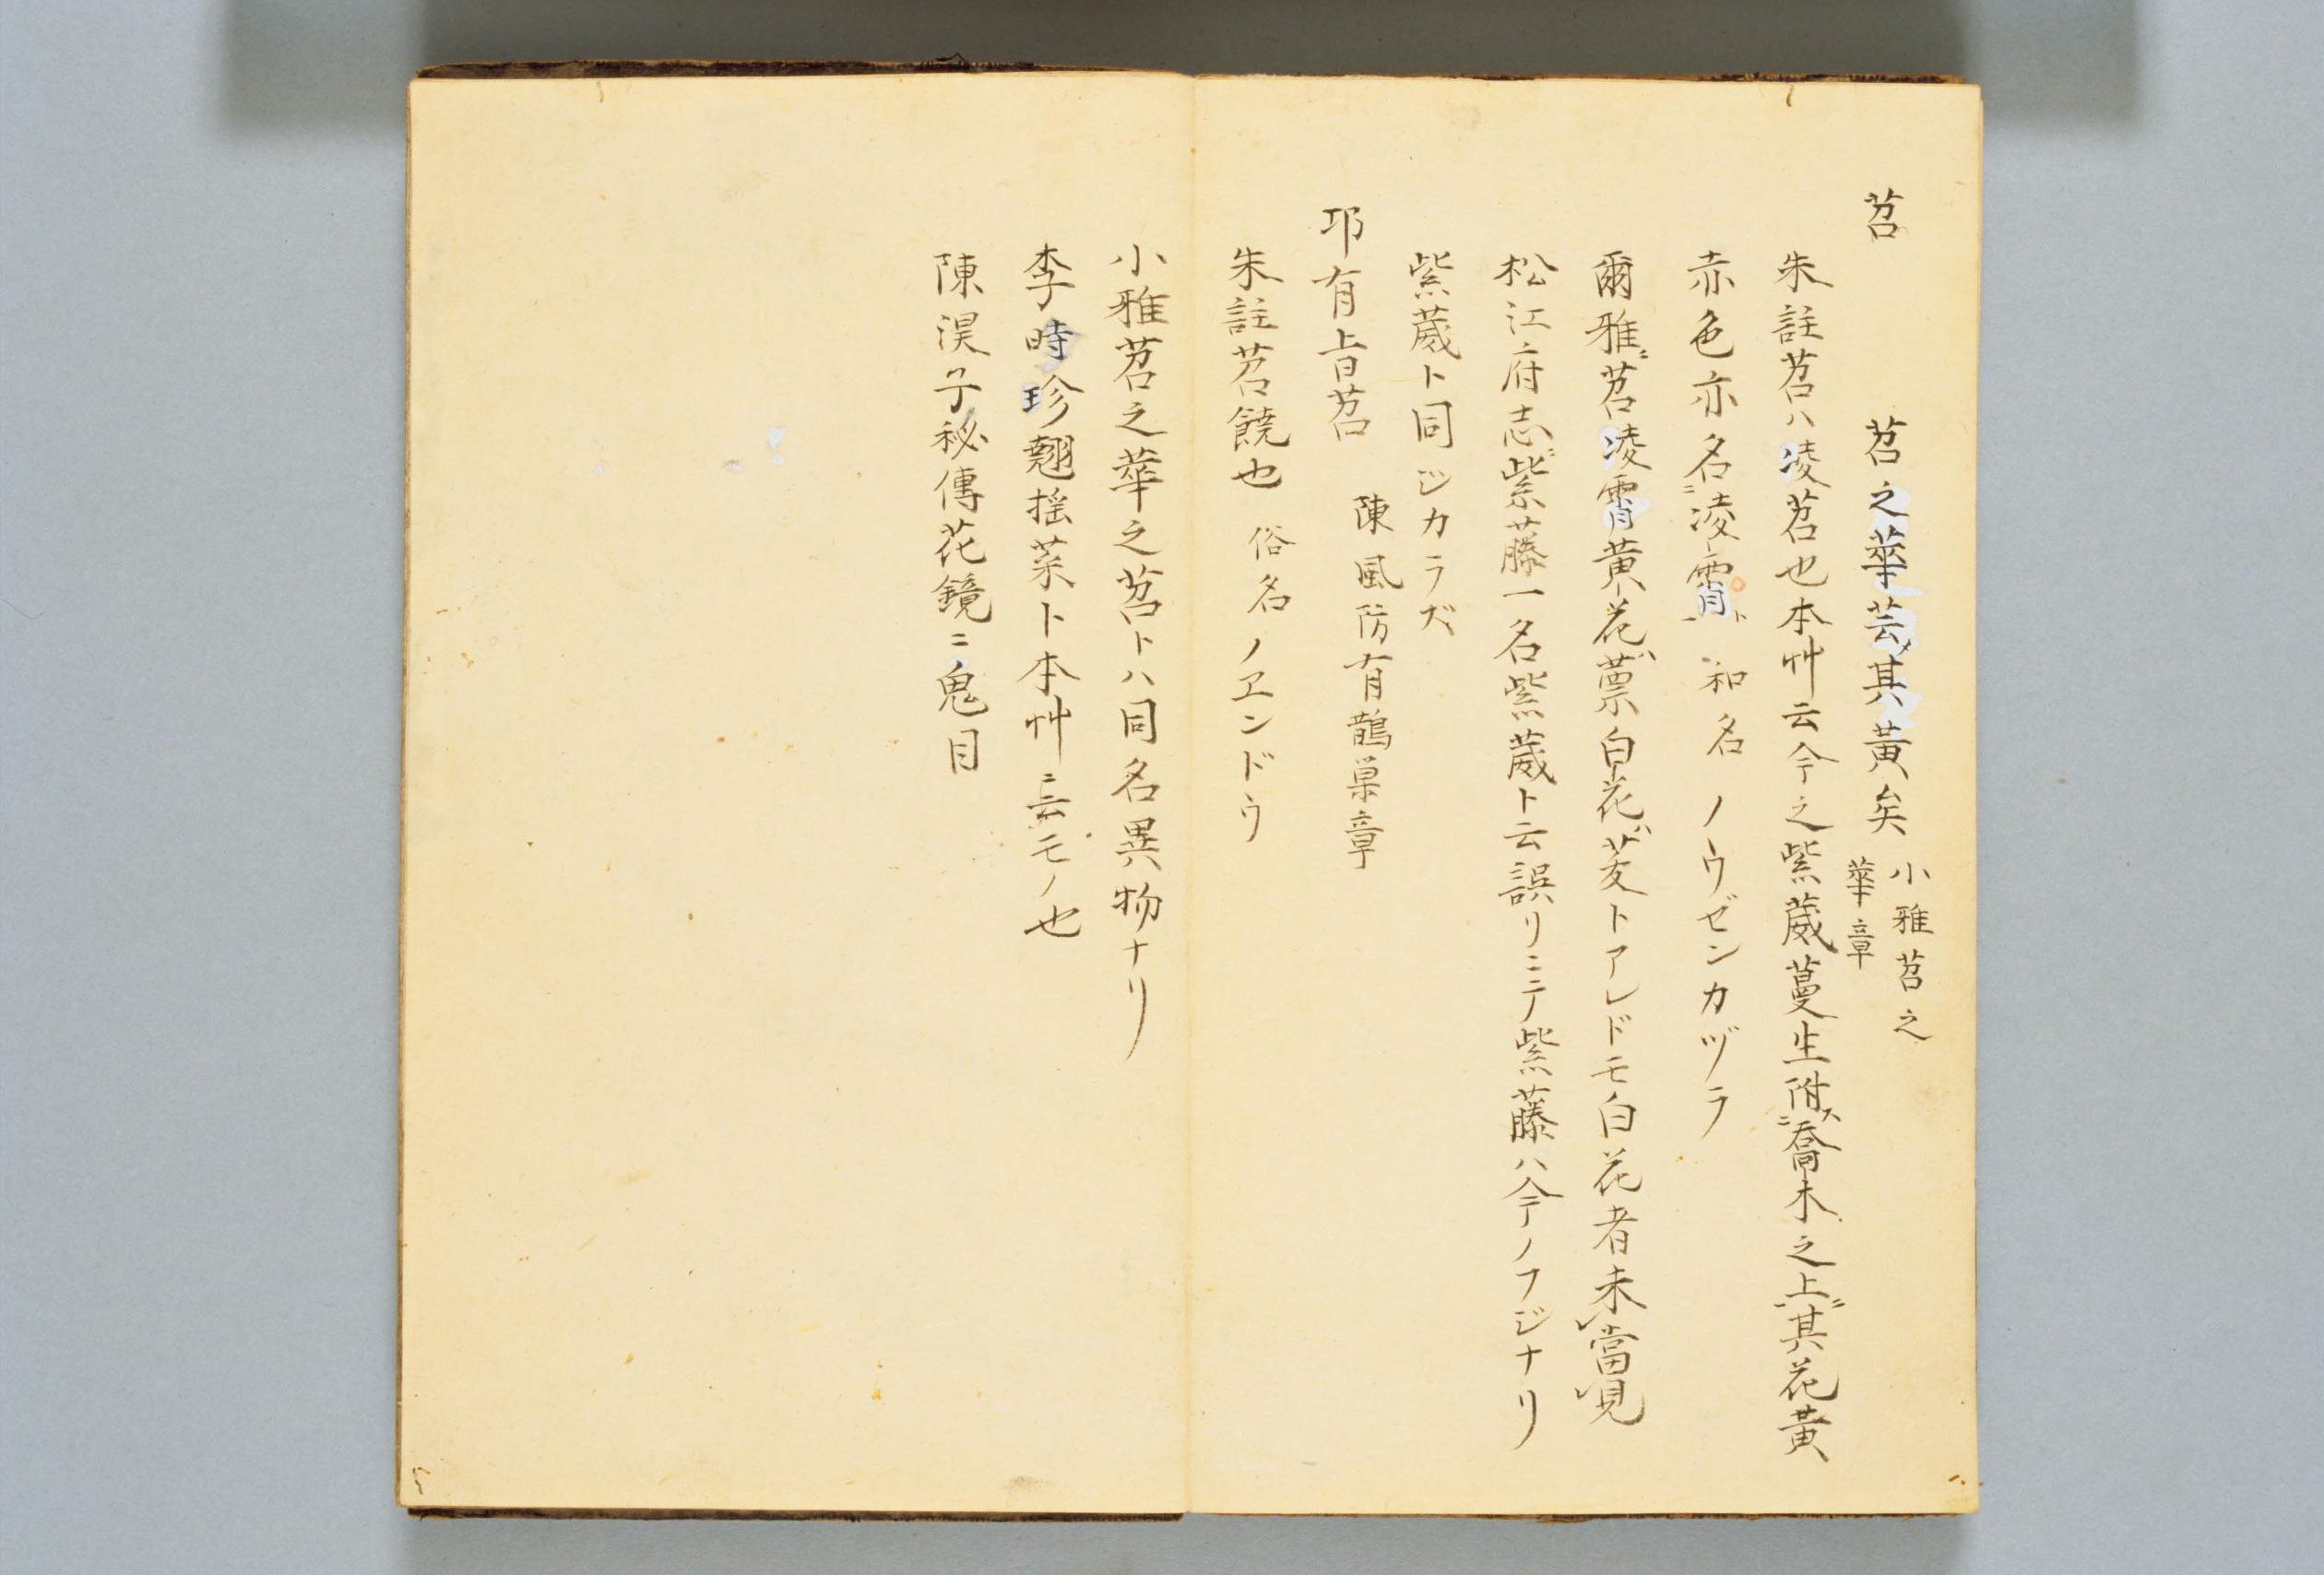 苕　苕之華芸其黄矣 小雅苕之
華章
朱註苕ハ凌苕也本艸云今之紫葳蔓生附ス喬木之上ニ其花黄
赤色亦名凌霄ト 和名 ノウゼンカヅラ
爾雅ニ苕凌霄黄花ハ蔈白花ハ茇トアレドモ白花者未當見
松江府志ニ紫藤一名紫葳ト云誤リニテ紫藤ハ今ノフジナリ
紫葳ト同ジカラズ
邛有旨苕 陳風防有鵲巣章
朱註苕饒也 俗名 ノヱンドウ
小雅苕之華之苕トハ同名異物ナリ
李時珍翹揺菜ト本艸ニ云モノ也
陳淏子秘傳花鏡ニ鬼目